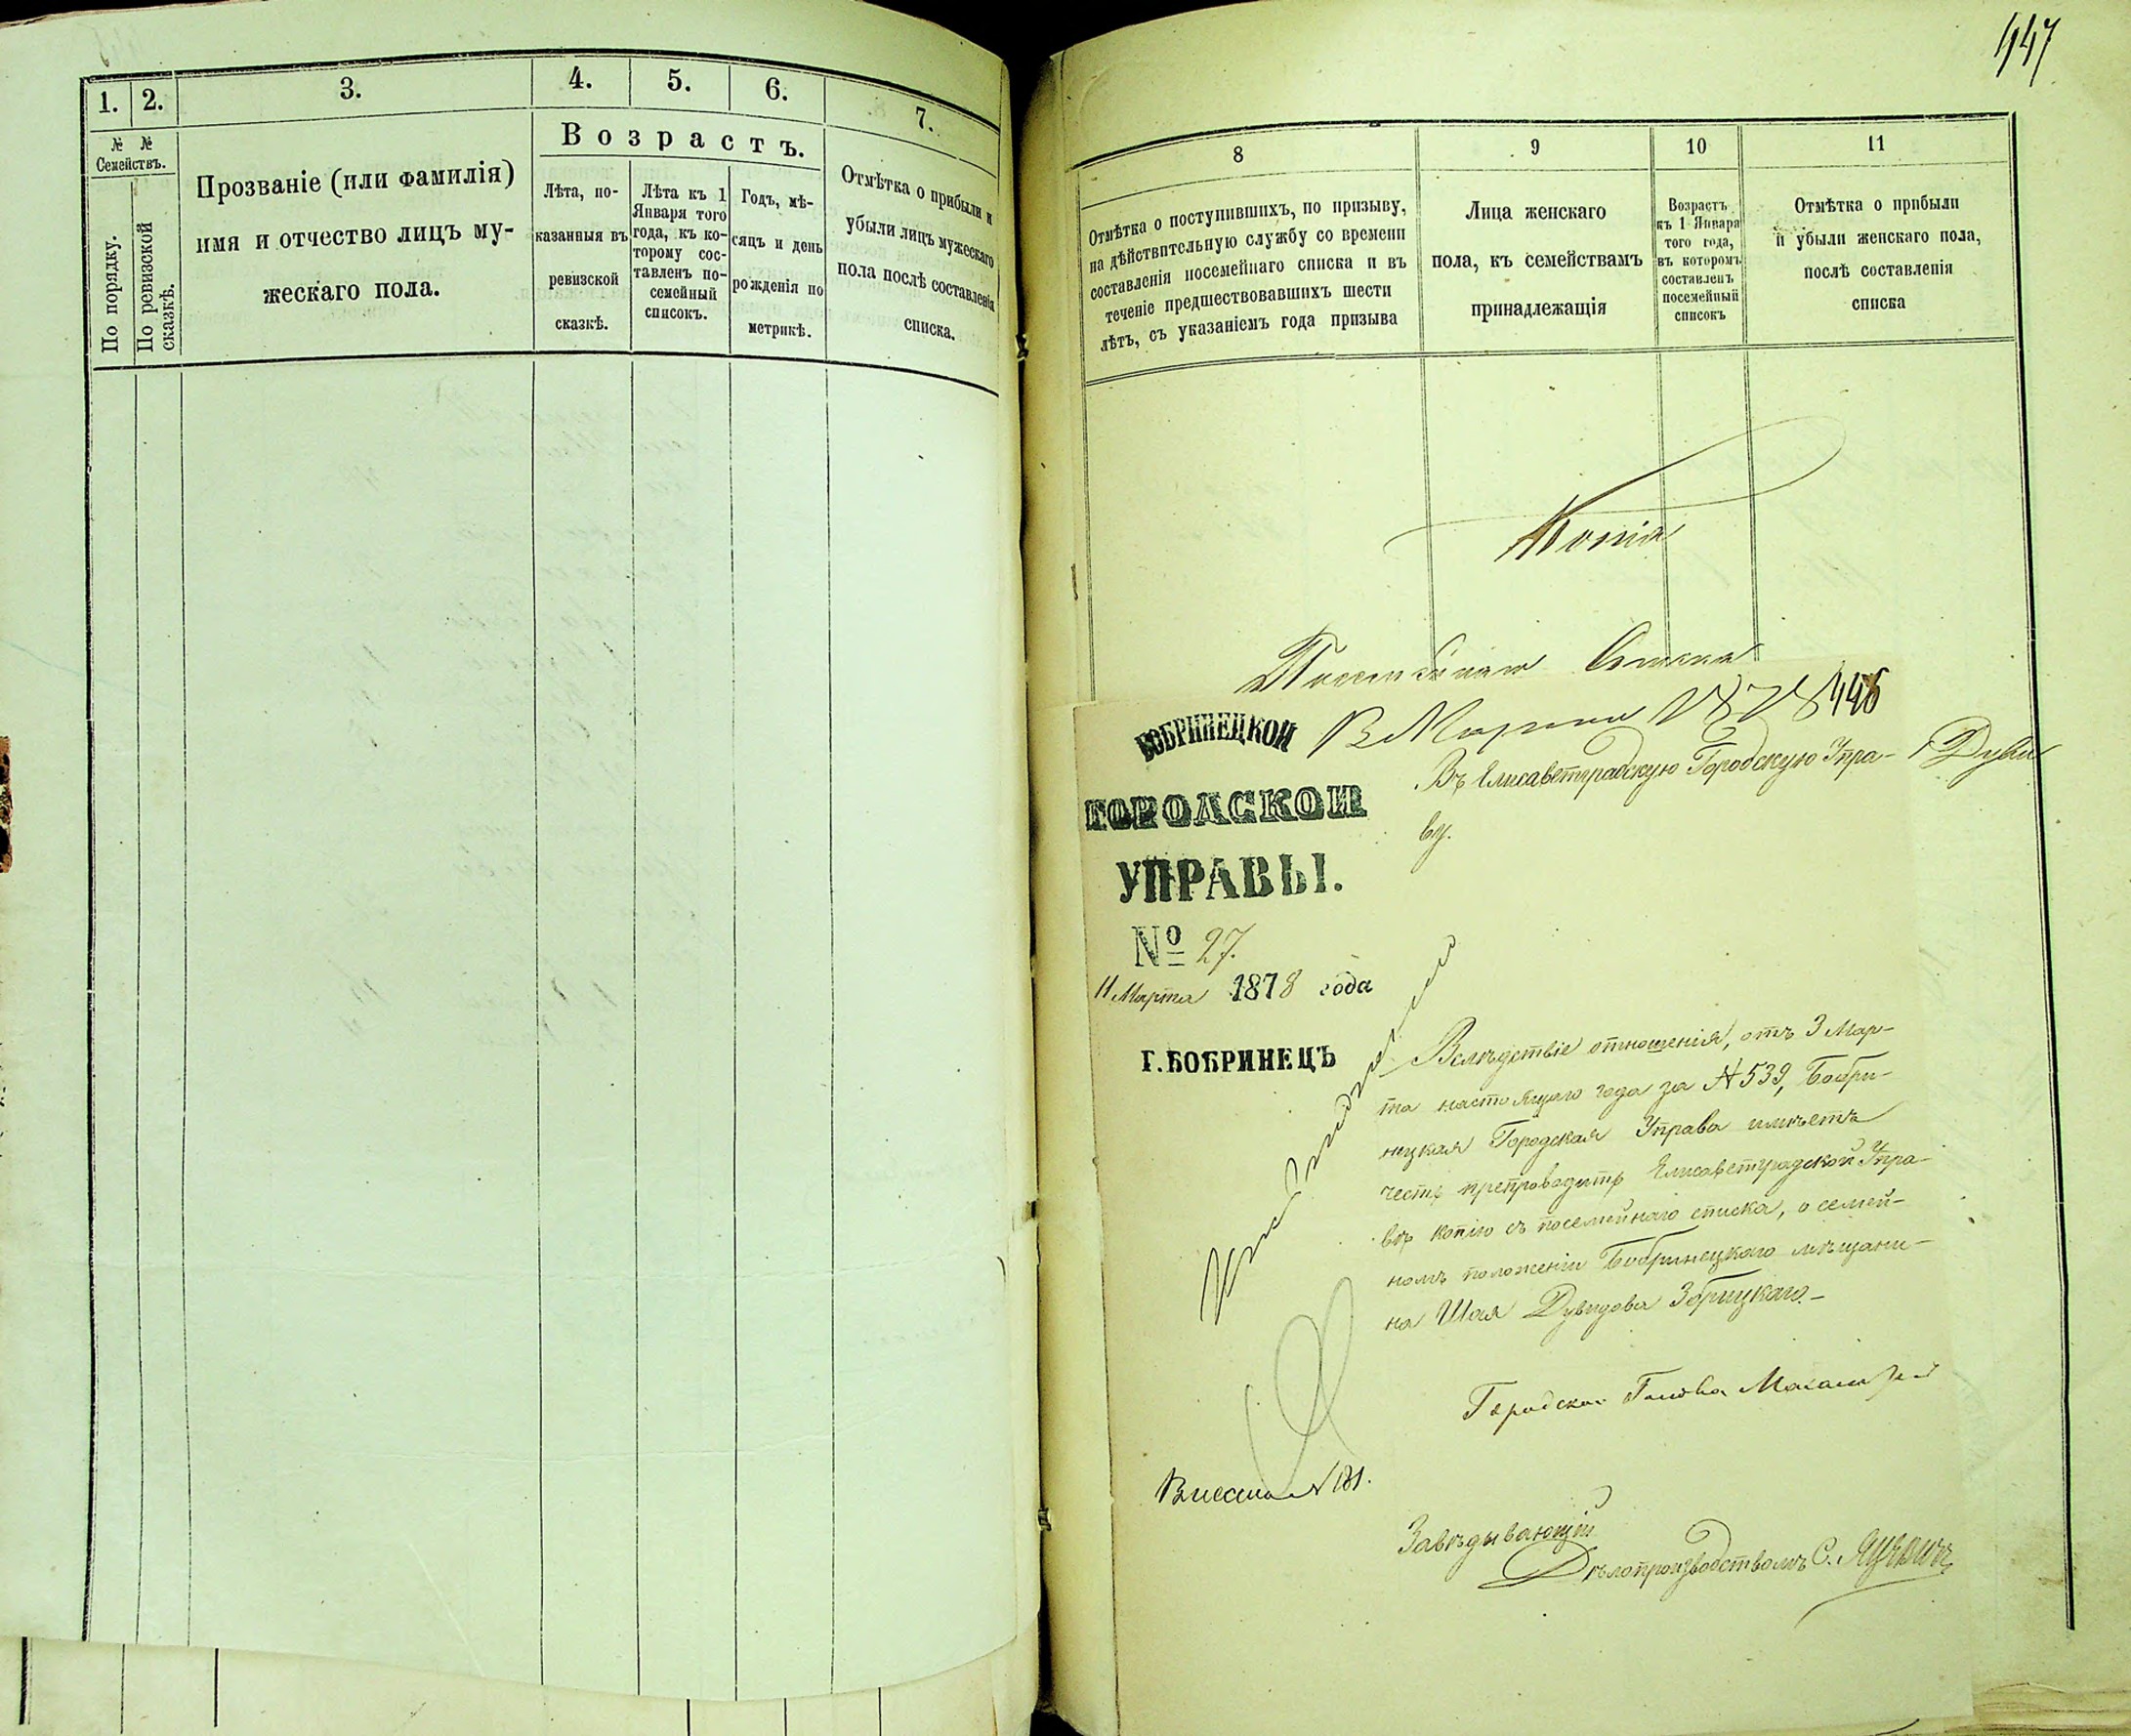 1.
2.
3.
4.
5.
6.
7.
№ №
Семействъ.
По порядку.
По ревизской
сказкѣ.
Прозваніе (или фамилія)
имя и отчество лицъ му-
жескаго пола.
Возрастъ.
Лѣта, по-
казанныя въ
ревизской
сказкѣ.
Лѣта къ 1
Января того
года, къ ко-
торому сос-
тавленъ по-
семейный
списокъ.
Годъ, мѣ-
сяцъ и день
рожденія по
метрикѣ.
Отмѣтка о прибыли и
убыли лицъ мужескаго
пола послѣ составленія
списка.
447
8
9
10
11
Отмѣтка о поступившихъ, по призыву,
на дѣйствительную службу со времени
составленія посемейнаго списка и въ
теченіе предшествовавшихъ шести
лѣтъ, съ указаніемъ года призыва
Лица женскаго
пола, къ семействамъ
принадлежащія
Возрастъ
къ 1 Января
того года,
въ которомъ
составленъ
посемейный
списокъ
Отмѣтка о прибыли
и убыли женскаго пола,
послѣ составленія
списка
Копія
Посемейнаго Списка
446
Марта 1878
БОБРИНЕЦКОЙ
ГОРОДСКОЙ
УПРАВЫ.
№ 27.
11 Марта 1878 года
Г. БОБРИНЕЦЪ
Въ Елисаветградскую Городскую Упра-
ву.
Вслѣдствіе отношенія, отъ 3 Мар-
та настоящаго года за № 539, Бобри-
нецкая Городская Управа имѣетъ
честь препроводить Елисаветградской Упра-
вѣ копію съ посемейнаго списка, о семей-
номъ положеніи Бобринецкаго мѣщани-
на Шая Дувидова Зборицкаго.-
Городской Голова
№ 181.
Завѣдывающій
Дѣлопроизводствомъ С. Яцевичъ